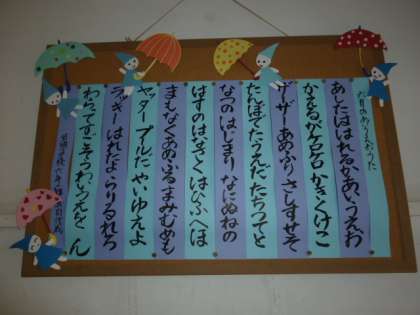 六月のあいうえおうた
あしたははれるかあいうえお
かえるがケロケロ かきくけこ
ザーザーあめふり さしすせそ
たんぼでたうえだ たちつてと
なつのはじまり なにぬねの
はすのはなさく はひふへほ
まもなくあめふる まみむめも
ヤッター プールだ やいゆえよ
ラッキー はれたよ らりるれろ
わらってすごそう わいうえをん